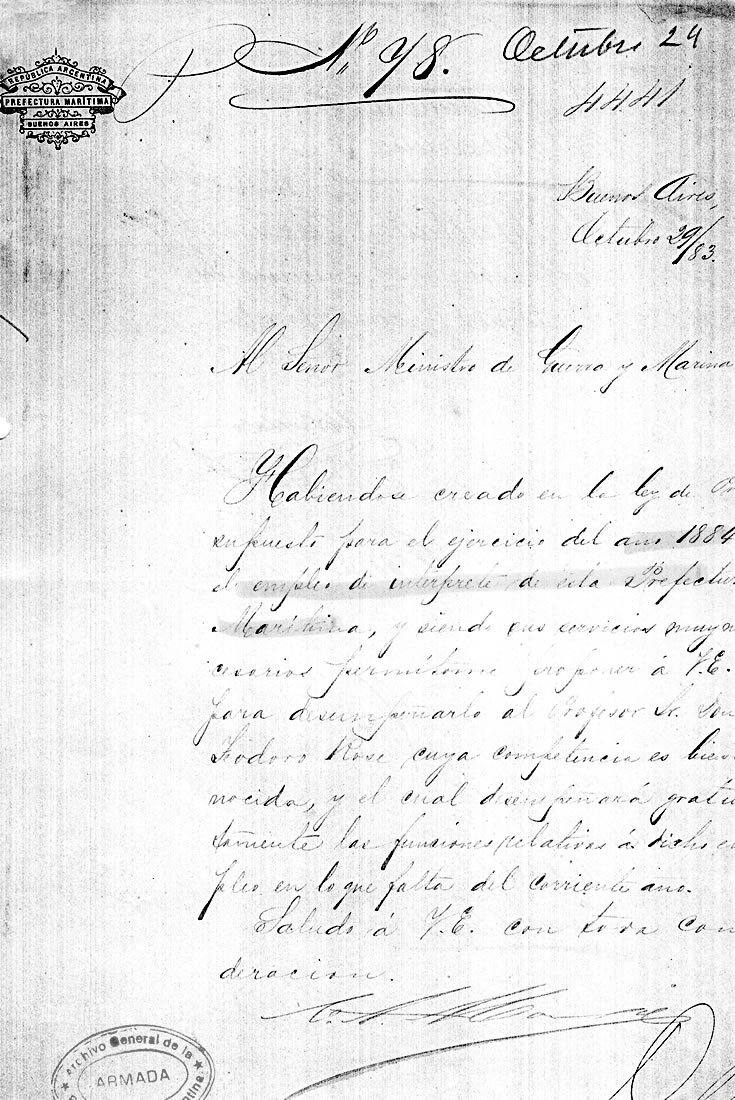 REPÚBLICA ARGENTINA
PREFECTURA MARÍTIMA
BUENOS AIRES
Octubre 24
4441
Buenos Aires,
Octubre 29/83.
Al Señor Ministro de Guerra y Marina
Habiendose creado en la ley de Pre
supuesto para el ejercicio del año 1884
el empleo de intérprete de esta Prefectur
Marítima, y siendo sus servicios muy n
cesarios permítome proponer á V.E.
para desempeñarlo al Profesor Sr. Don
Teodoro Rose cuya competencia es bien
nocida, y el cual desempeñará gratu
tamente las funciones relativas á dicho em
pleo en lo que falta del corriente año.
Saludo á V.E. con toda con
deracion.
Archivo General de la
ARMADA